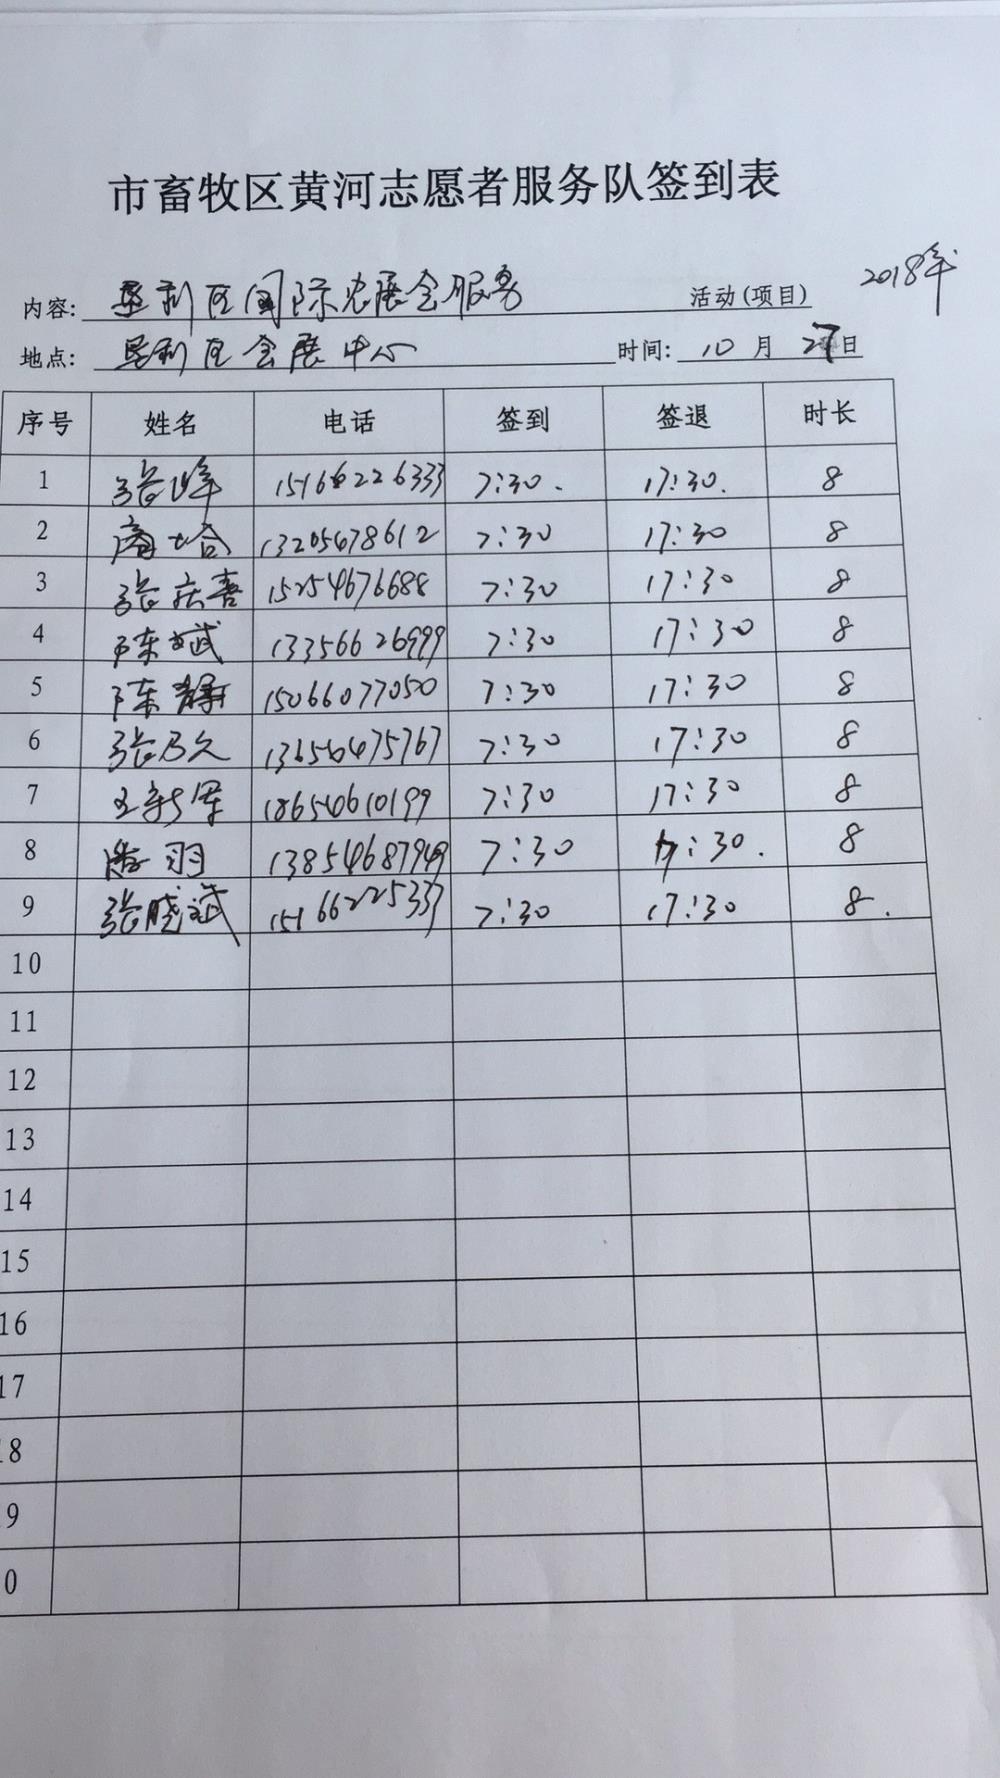 市畜牧区黄河志愿者服务队签到表
2018年
内容: 垦利区国际农展会服务 活动(项目)
地点: 垦利区会展中心 时间: 10 月 27 日
序号 姓名 电话 签到 签退 时长
1 张峰 15166226333 7:30. 17:30. 8
2 13205478612 7:30 17:30 8
3 张庆喜 15254676688 7:30 17:30 8
4 陈斌 13356626999 7:30 17:30 8
5 陈静 15066077050 7:30 17:30 8
6 张乃久 13656475767 7:30 17:30 8
7 王新军 18654610199 7:30 17:30 8
8 潘羽 13854687949 7:30 17:30. 8
9 张晓斌 15166225337 7:30 17:30 8.
10
11
12
13
14
15
16
17
18
9
0